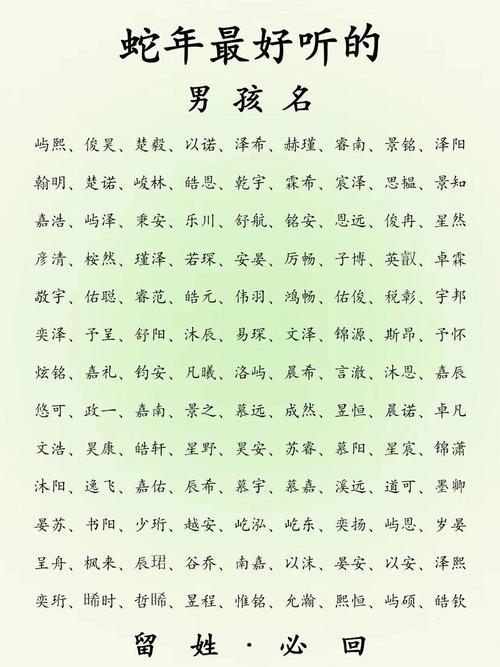 蛇年最好听的
男孩名
屿熙、俊昊、楚毅、以诺、泽希、赫瑾、睿南、景铭、泽阳
翰明、楚诺、峻林、皓恩、乾宇、霖希、宸泽、思韫、景知
嘉浩、屿泽、秉安、乐川、舒航、铭安、恩远、俊冉、星然
彦清、桉然、瑾泽、若琛、安晏、厉畅、子博、英叡、卓霖
敬宇、佑聪、睿范、皓元、伟羽、鸿畅、佑俊、税彰、宇邦
奕泽、予呈、舒阳、沐辰、易琛、文泽、锦源、斯昂、予怀
炫铭、嘉礼、钧安、凡曦、洛屿、晨希、言澈、沐恩、嘉辰
悠可、政一、嘉南、景之、慕远、成然、昱恒、晨诺、卓凡
文浩、昊康、皓轩、星野、昊安、苏睿、慕阳、星宸、锦潇
沐阳、逸飞、嘉佑、辰希、慕宇、慕嘉、溪远、道可、墨卿
晏苏、书阳、少珩、越安、屹泓、屹东、奕扬、屿恩、岁晏
呈舟、枫来、辰珺、谷乔、南嘉、以沫、晏安、以安、泽熙
奕珩、晞时、哲晞、昱程、惟铭、允瀚、熙恒、屿硕、皓钦
留姓·必回